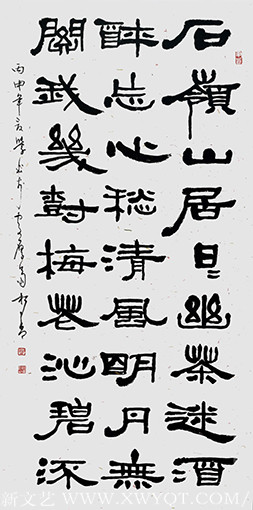 石嶺山居日日幽茶迷酒
醉忘心愁清風明月無
關我幾對梅花沁碧流
丙申年
新文艺 WWW.XWYQT.COM/